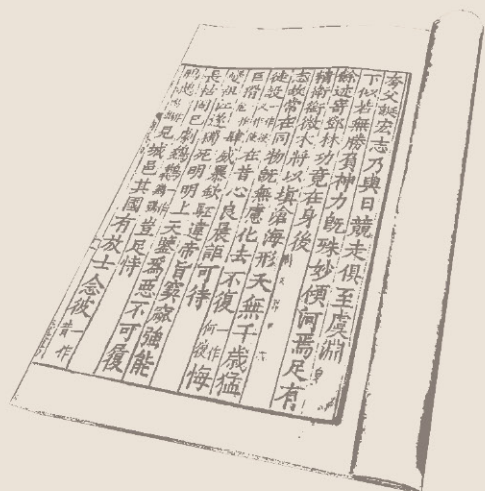 夸父誕宏志乃與日競走俱至虞淵
下似若無勝負神力旣殊妙傾河焉足有
餘迹寄鄧林功竟在身後
精衛銜微木將以塡滄海形夭無千歲猛
志故常在同物旣無慮化去不復悔
徒設在昔心良晨詎可待
巨猾肆威暴欽駓違帝旨窫窳強能
變祖江遂獨死明明上天鑒爲惡不可履
長枯固已劇鵕鶚豈足恃
見城邑其國有放士念彼